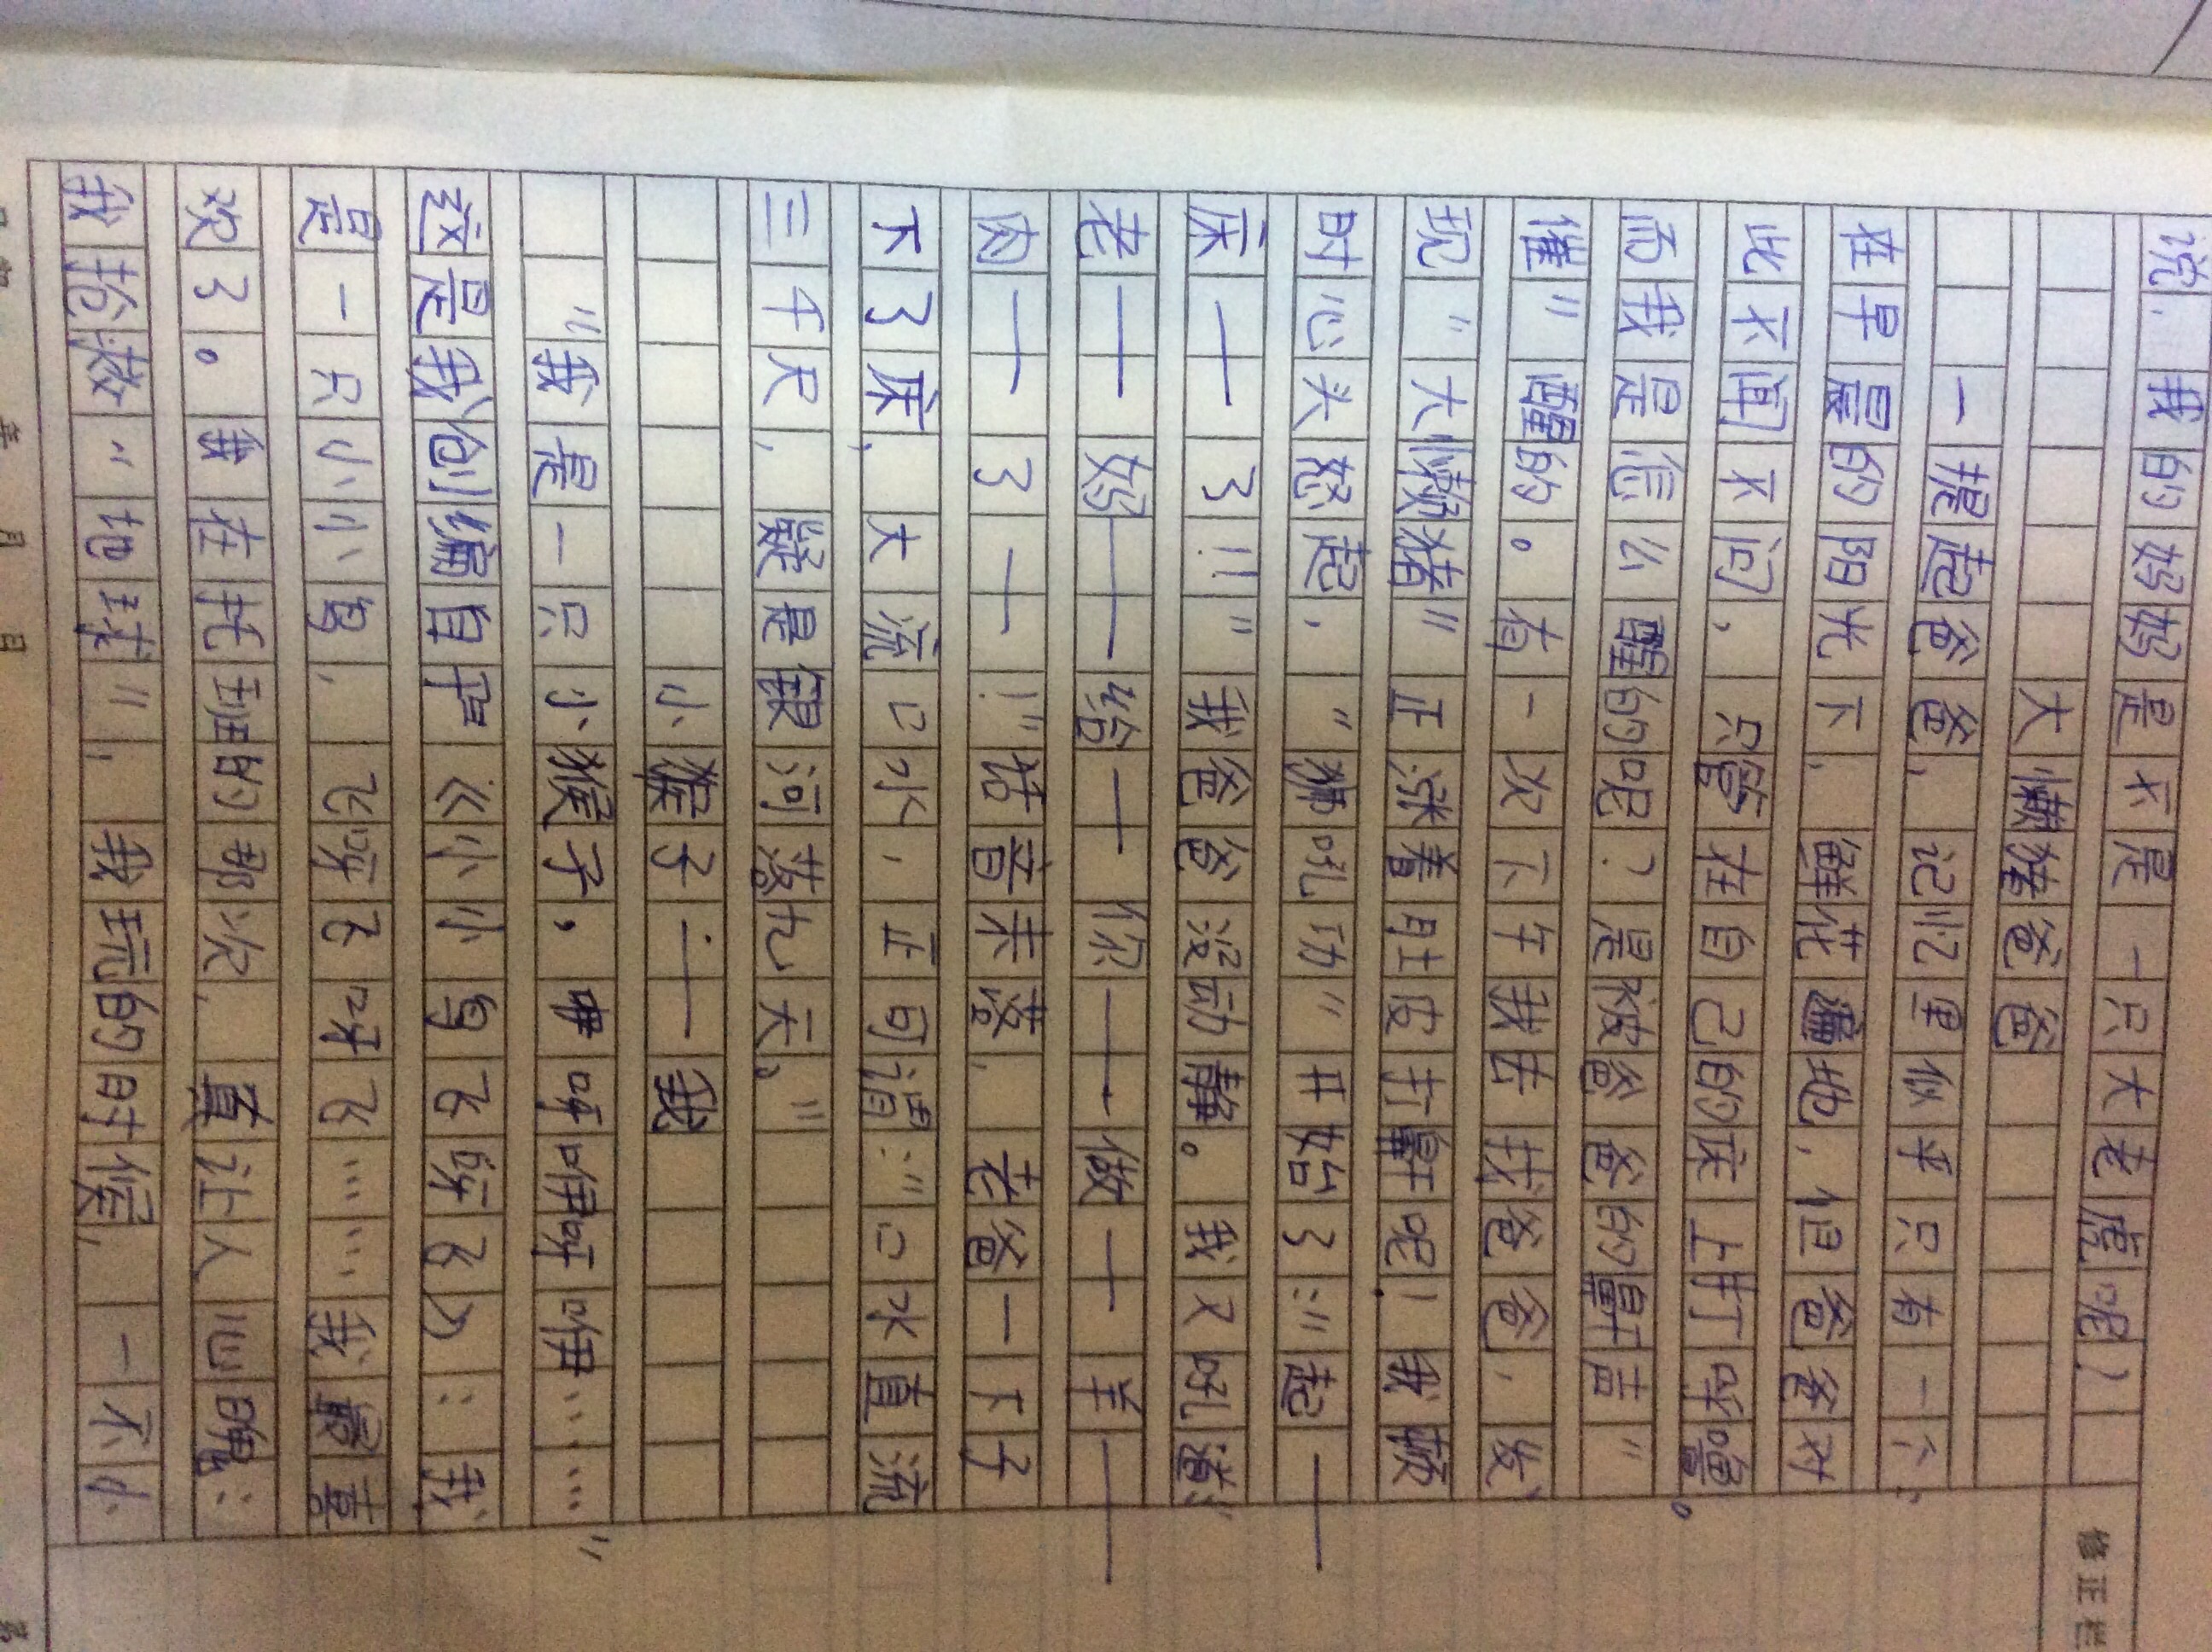 说，我的妈妈是不是一只大老虎呢？
大懒猪爸爸
一提起爸爸，记忆里似乎只有一个，
在早晨的阳光下，鲜花遍地，但爸爸对
此不闻不问，只管在自己的床上打呼噜。
而我是怎么醒的呢？是被爸爸的鼾声"
催"醒的。有一次下午我去找爸爸，发
现"大懒猪"正涨着肚皮打鼾呢！我顿
时心头怒起，"狮吼功"开始了："起——
床——了！！"我爸爸没动静。我又吼道：
老——妈——给——你——做——羊——
肉——了——！"话音未落，老爸一下子
下了床，大流口水，正可谓："口水直流
三千尺，疑是银河落九天。"
小猴子——我
"我是一只小猴子，咿呀咿呀咿……"
这是我创编自于《小小小鸟飞呀飞》：我
是一只小小鸟，飞呀飞呀飞……我最喜
欢了。我在托班的那次，真让人心瞻：
我抢滚"地球"，我玩的时候，一不小
修正栏
年 月 日